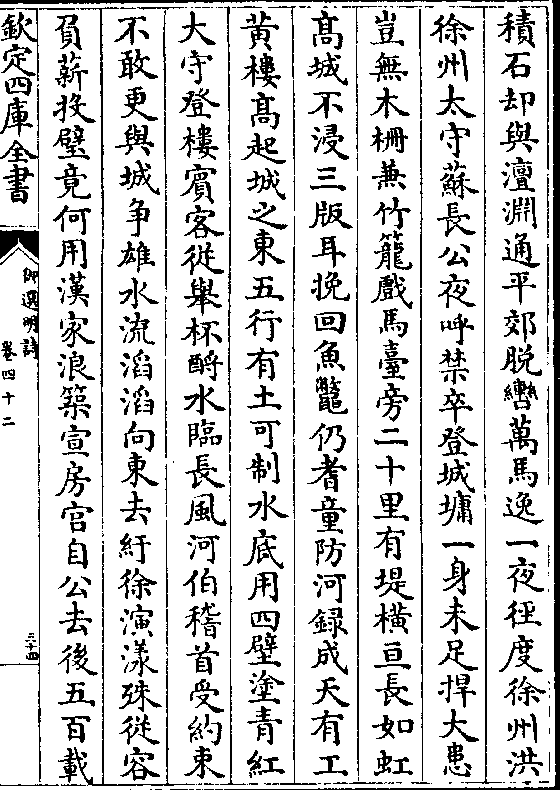 積石却與澶淵通平郊脱轡萬馬逸一夜徑度徐州洪
徐州太守蘇長公夜呼禁卒登城墉一身未足捍大患
豈無木柵兼竹籠戲馬臺旁二十里有堤横亘長如虹
髙城不浸三版耳挽回魚鼈仍耆童防河録成天有工
黄樓髙起城之東五行有土可制水底用四壁塗青紅
大守登樓賓客從舉杯酹水臨長風河伯稽首受約束
不敢更與城爭雄水流滔滔向東去紆徐演漾殊從容
負薪投璧竟何用漢家浪築宣房宫自公去後五百載
欽定四庫全書
御選明詩
卷四十二
三十四